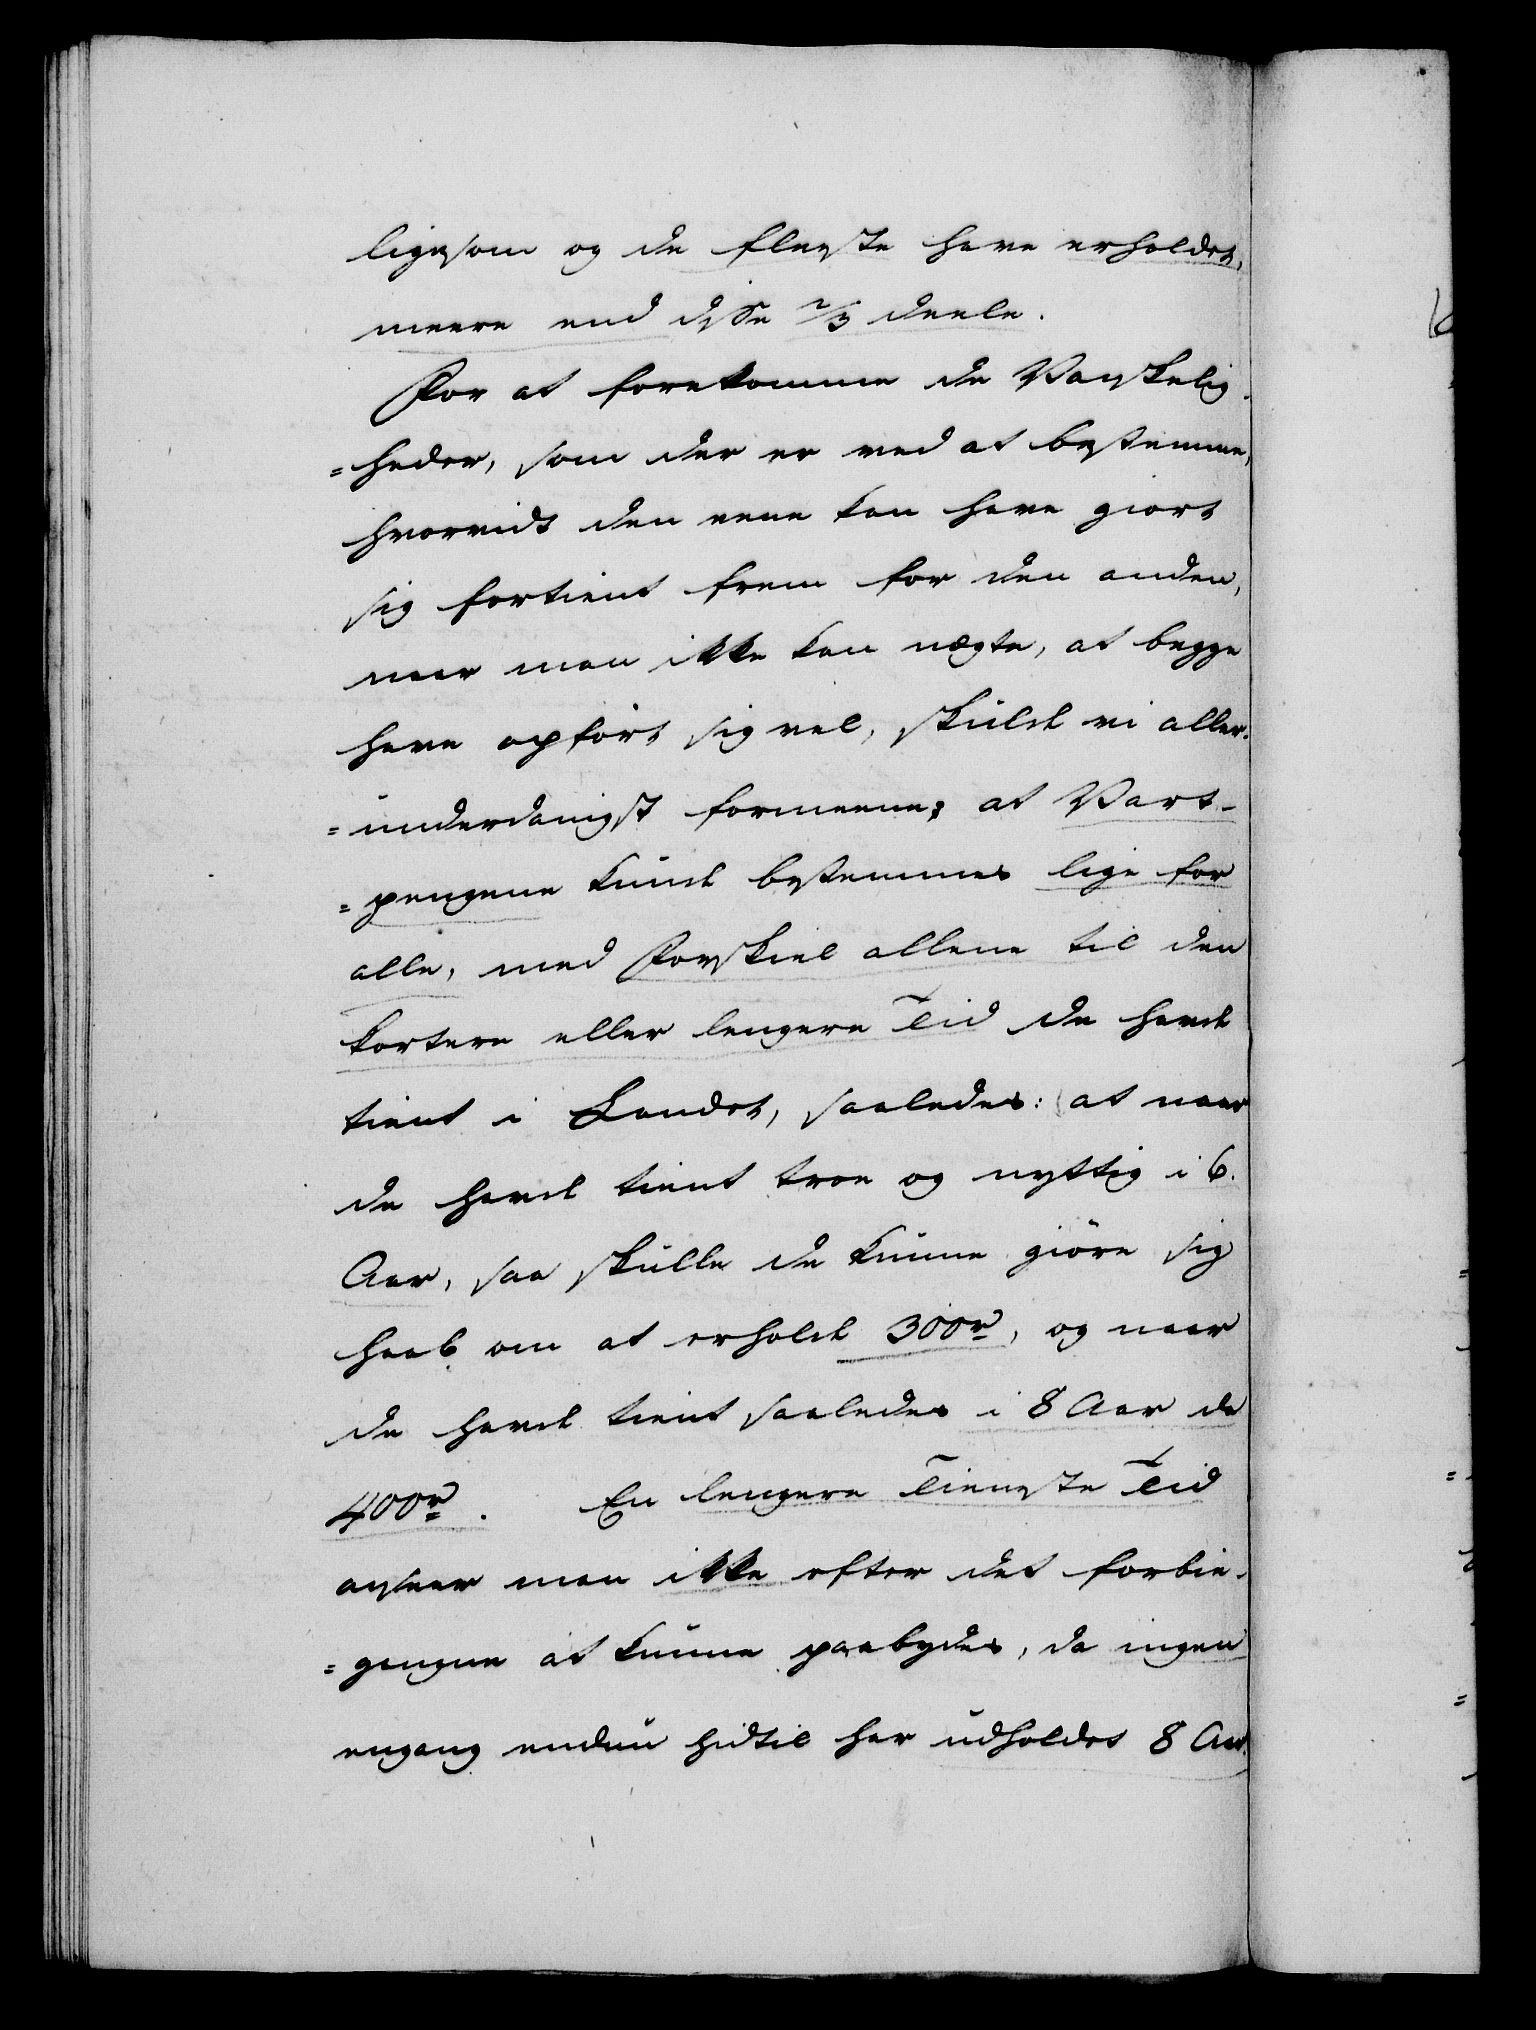 ligesom og de fleeste have erholdet,
meere end disse 2/3 deele.
For at forekomme de Vanskelig-
=heder, som der er ved at bestemme,
hvorvidt den eene kan have giort
sig fortient frem for den anden,
naar man ikke kan nægte, at begge
have opført sig vel, skulde vi aller-
=underdanigst formeene; at Vart-
=pengene kunde bestemmes lige for
alle, med Forskiel allene til den
kortere eller lengere Tid de havde
tient i Landet, saaledes: at naar
de havde tient troe og nyttig i 6.
Aar, saa skulle de kunne giöre sig
haab om at erholde 300r, og naar
de havde tient saaledes i 8 Aar da
400r. En lengere Tieneste Tid
anseer man ikke efter det forbie-
=gangne at kunne paabydes, da ingen
engang endnu hidtil har udholdet 8 Aar.